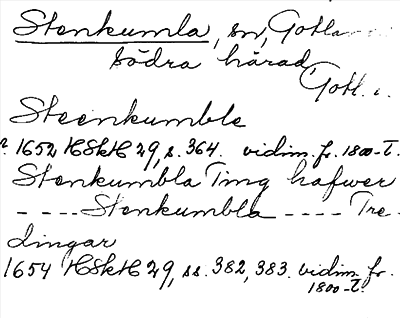 Stenkumla, sn, Gotlan
södra härad,
Gotl.
Steenkumble
1652 HSkH 29, s. 364. vidim. fr. 1800-t.
Stenkumbla Ting hafwer
---- Stenkumbla ---- Tre
dingar
1654 HSkH 29, ss. 382, 383. vidim. fr.
1800-t.